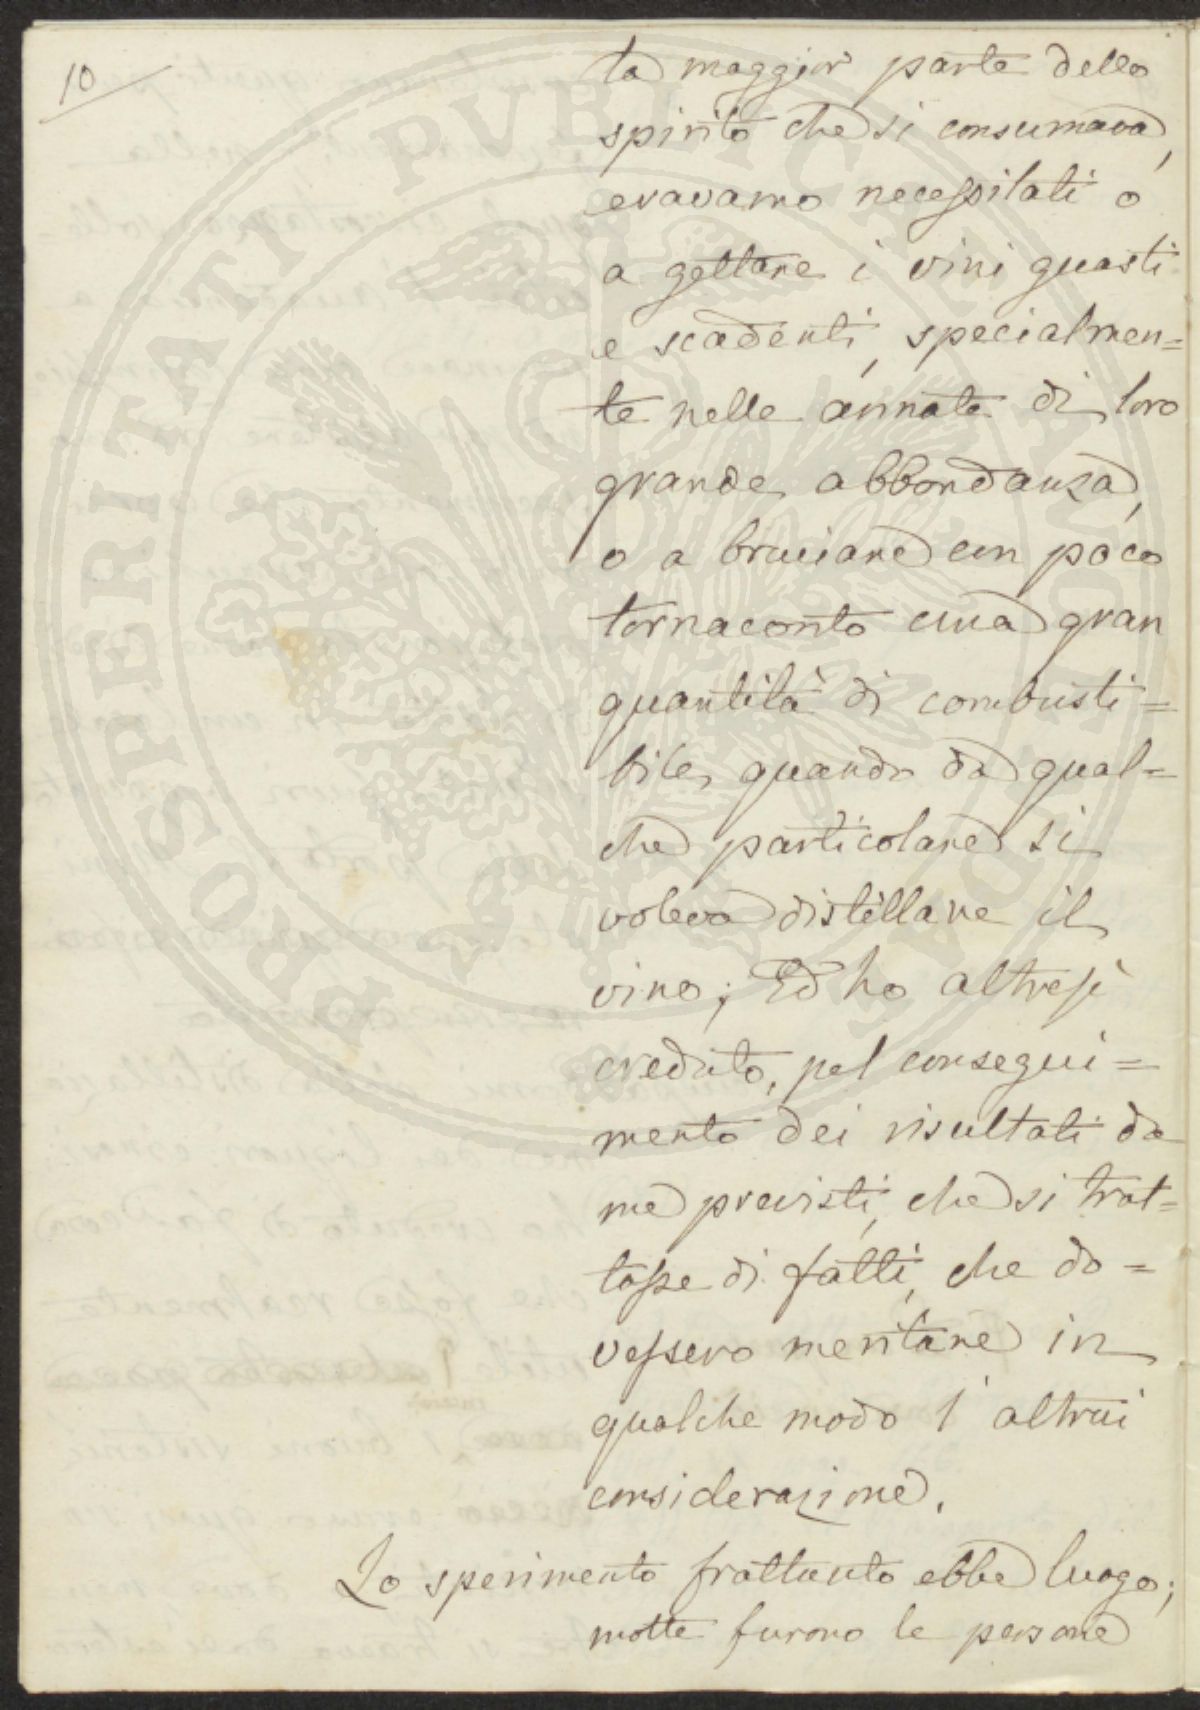 10
la maggior parte dello
spirito che si consumava,
eravamo necessitati o
a gettare i vini guasti
e scadenti, specialmen=
te nelle annate di loro
grande abbondanza,
o a bruciare con poco
tornaconto una gran
quantità di combusti=
bile, quando da qual=
che particolare si
voleva distillare il
vino; Ed ho altresì
creduto, pel consegui=
mento dei risultati da
me previsti, che si trat=
tasse di fatti, che do=
vessero meritare in
qualche modo l'altrui
considerazione.
Lo sperimento frattanto ebbe luogo;
molte furono le persone
PROSPERITATI PVBLICAE AVGENDAE